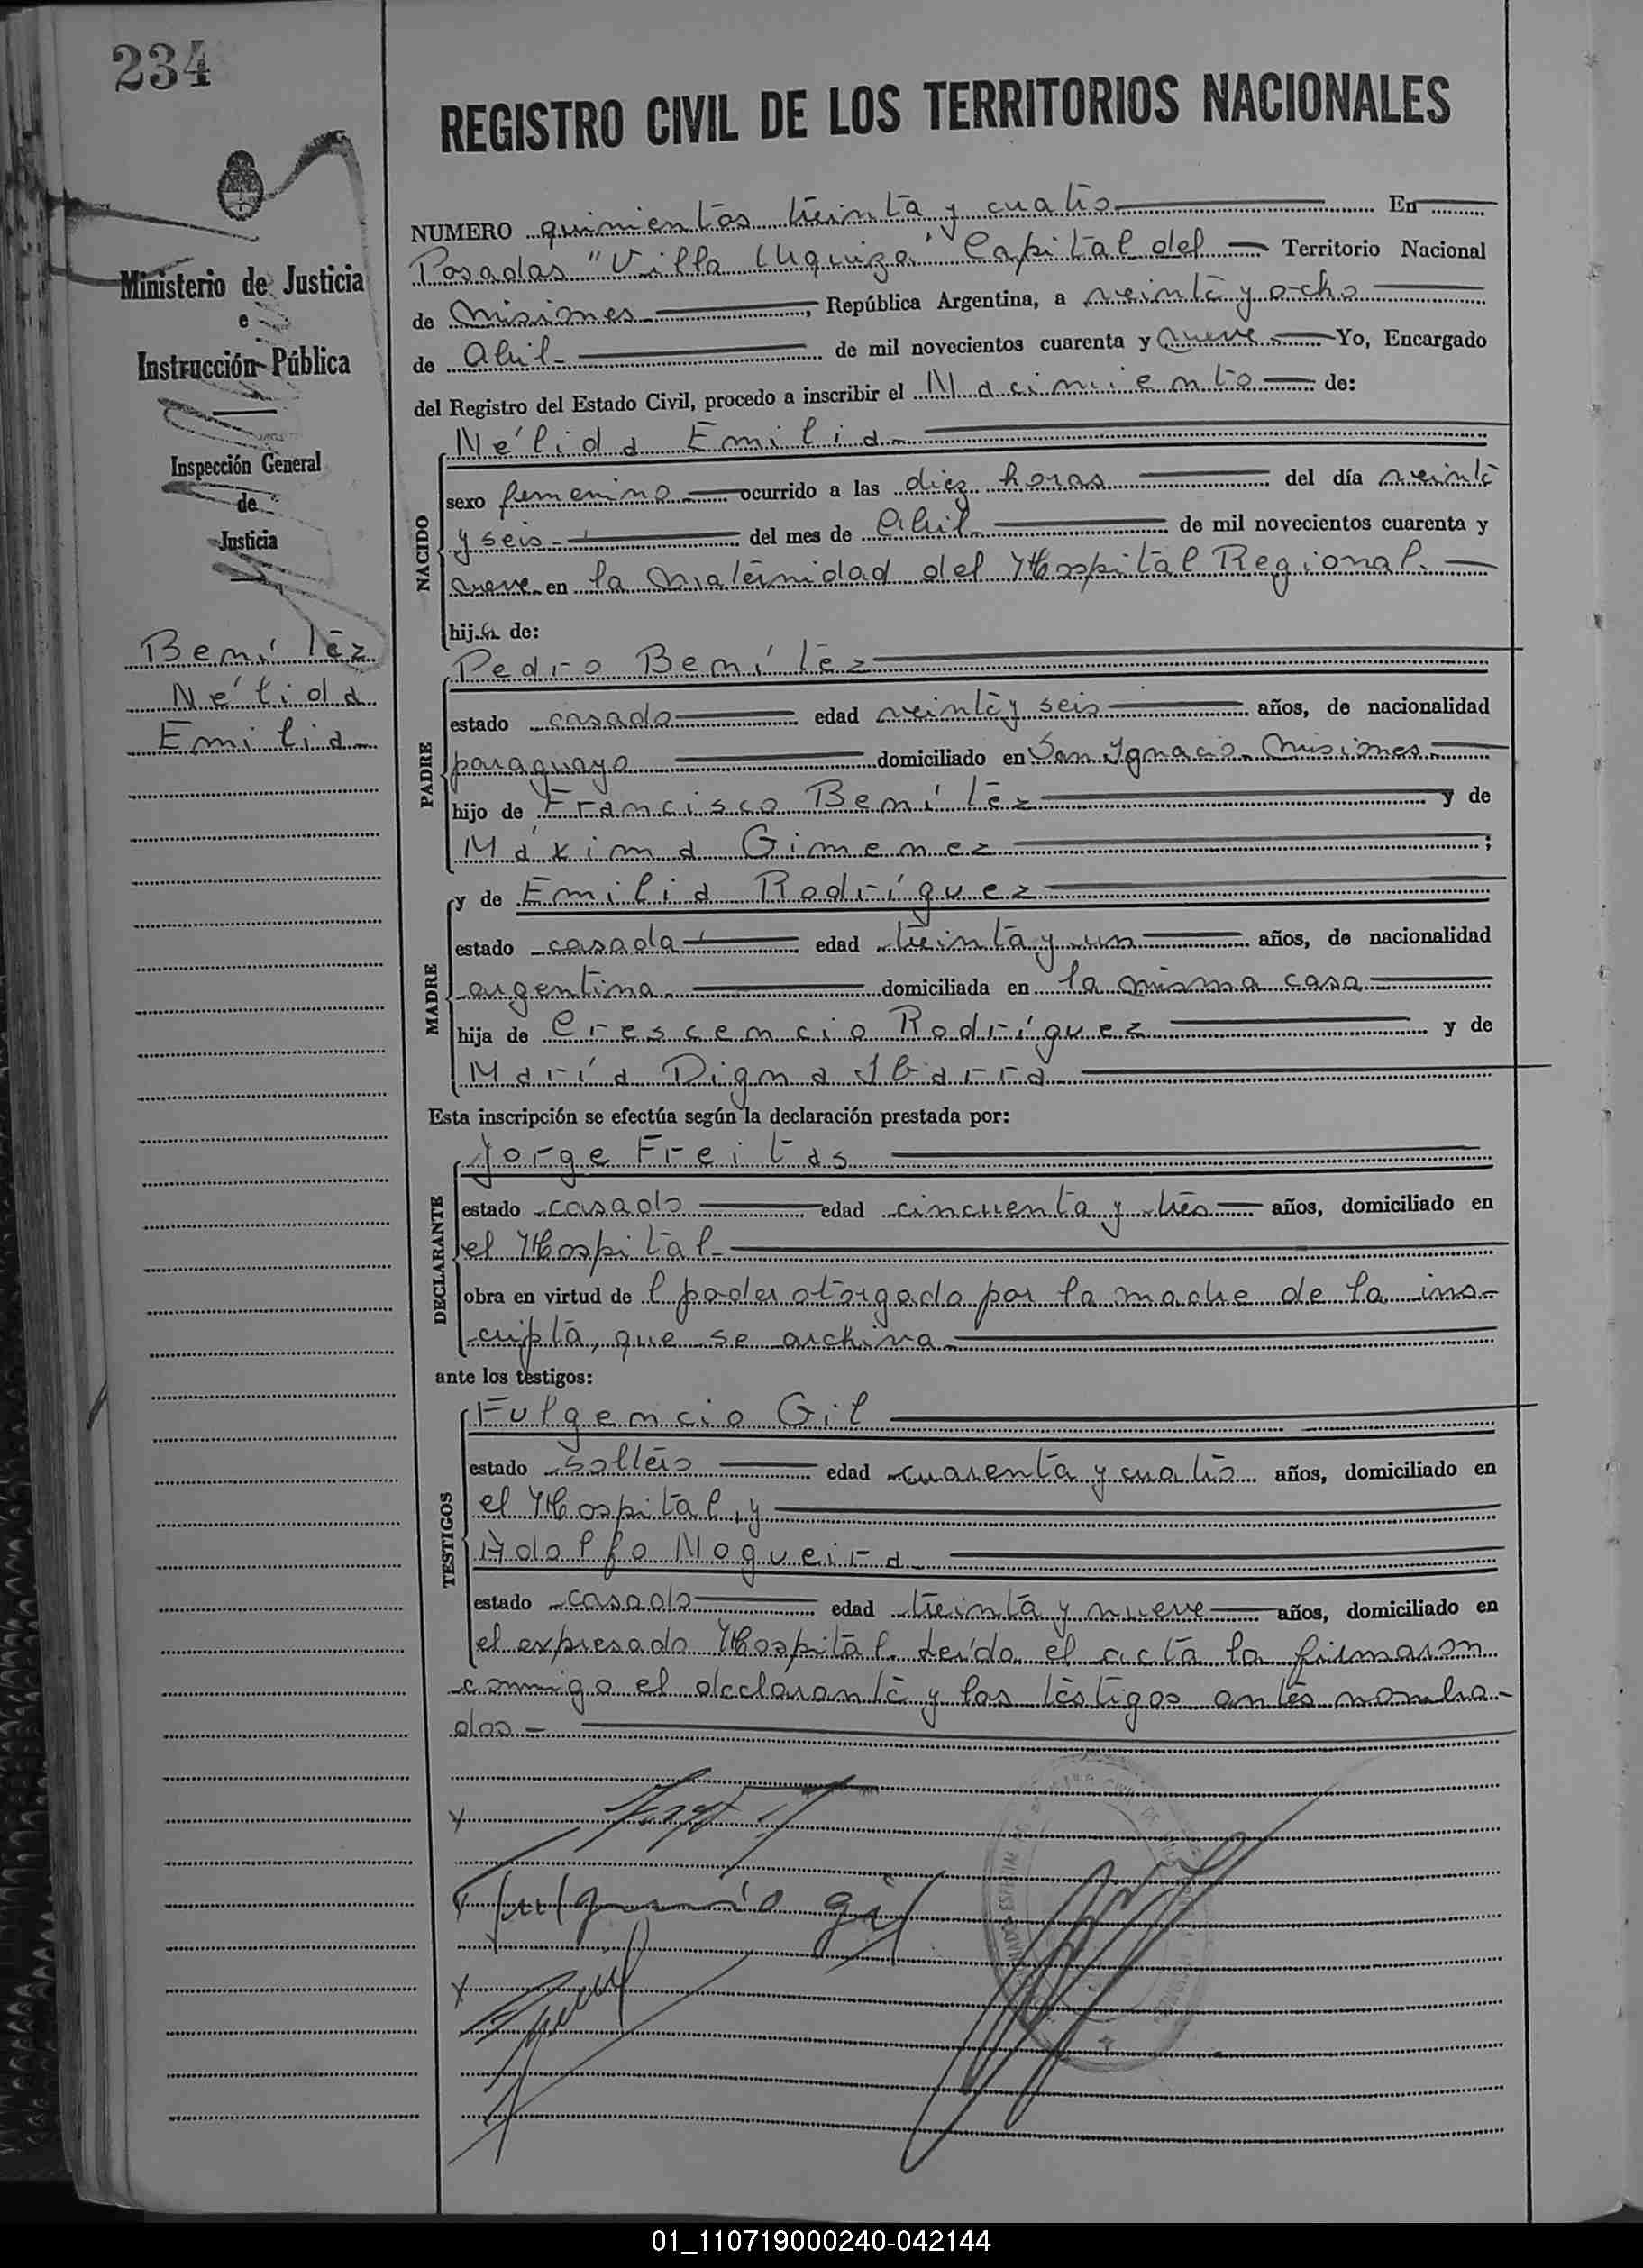 234
REGISTRO CIVIL DE LOS TERRITORIOS NACIONALES
Ministerio de Justicia
e
Instrucción Pública
Inspección General
de
Justicia
Benítez
Nélida
Emilia
NUMERO quinientos treinta y cuatro En
Posadas "Villa Urquiza" Capital del Territorio Nacional
de Misiones, República Argentina, a veinte y ocho
de Abril de mil novecientos cuarenta y nueve Yo, Encargado
del Registro del Estado Civil, procedo a inscribir el Nacimiento de:
NACIDO
Nélida Emilia
sexo femenino ocurrido a las diez horas del día veinte
y seis del mes de Abril de mil novecientos cuarenta y
nueve en la Maternidad del Hospital Regional.
hija de:
PADRE
Pedro Benítez
estado casado edad veinte y seis años, de nacionalidad
paraguayo domiciliado en San Ignacio Misiones
hijo de Francisco Benítez y de
Máxima Gimenez;
MADRE
y de Emilia Rodríguez
estado casada edad treinta y un años, de nacionalidad
argentina domiciliada en la misma casa
hija de Crescencio Rodríguez y de
María Digna Ibarra
Esta inscripción se efectúa según la declaración prestada por:
DECLARANTE
Jorge Freitas
estado casado edad cincuenta y tres años, domiciliado en
el Hospital
obra en virtud de l poder otorgado por la madre de la ins-
cripta, que se archiva
ante los testigos:
TESTIGOS
Fulgencio Gil
estado soltero edad cuarenta y cuatro años, domiciliado en
el Hospital, y
Adolfo Nogueira
estado casado edad treinta y nueve años, domiciliado en
el expresado Hospital. Leída el acta la firmaron
conmigo el declarante y los testigos antes nombra-
dos
Fulgencio Gil
01_110719000240-042144